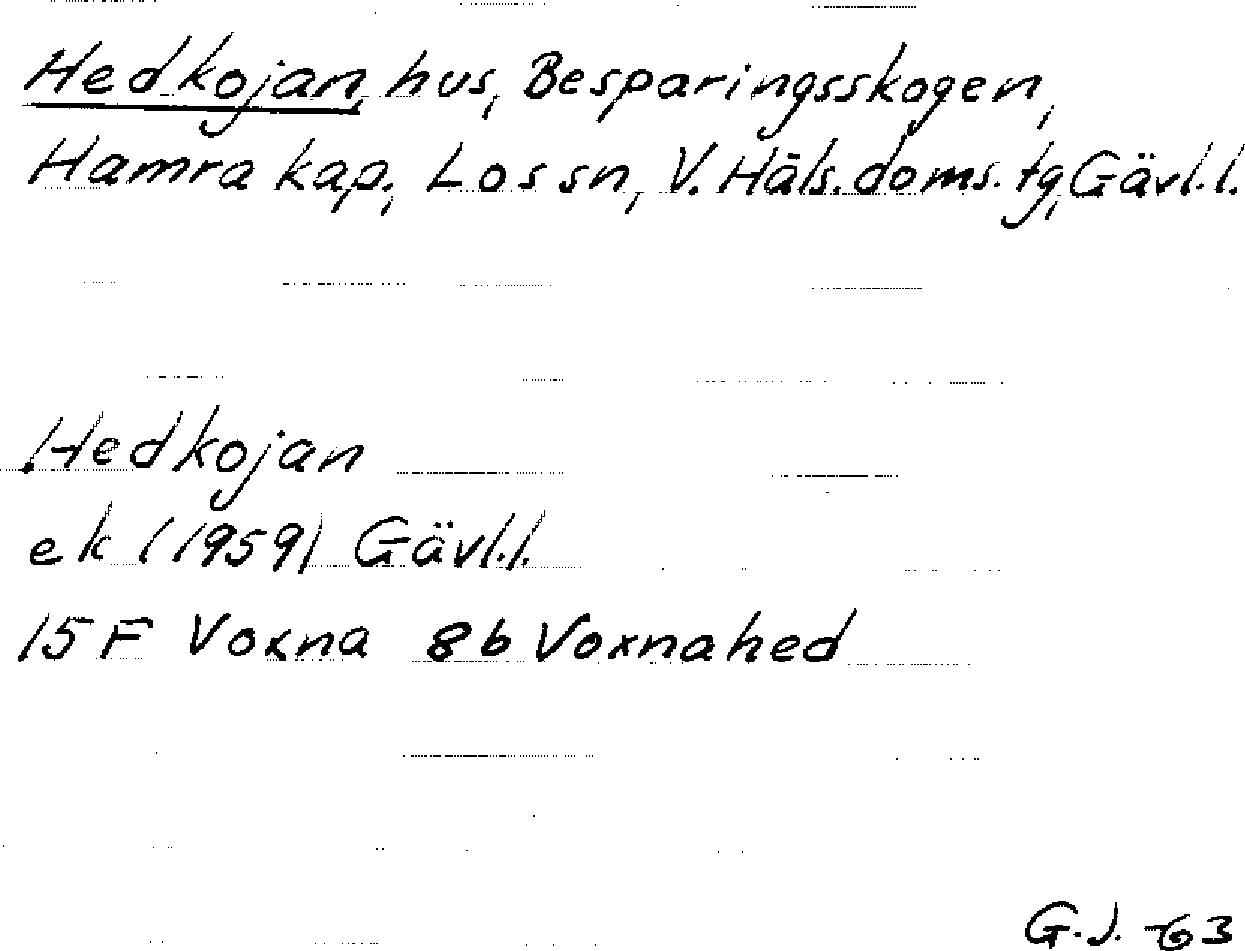 Hedkojan, hus, Besparingsskogen,
Hamra kap., Los sn, V. Häls. doms. tg, Gävl.l.
Hedkojan
ek (1959) Gävl.l.
15 F Voxna 8b Voxnahed
G.J. -63